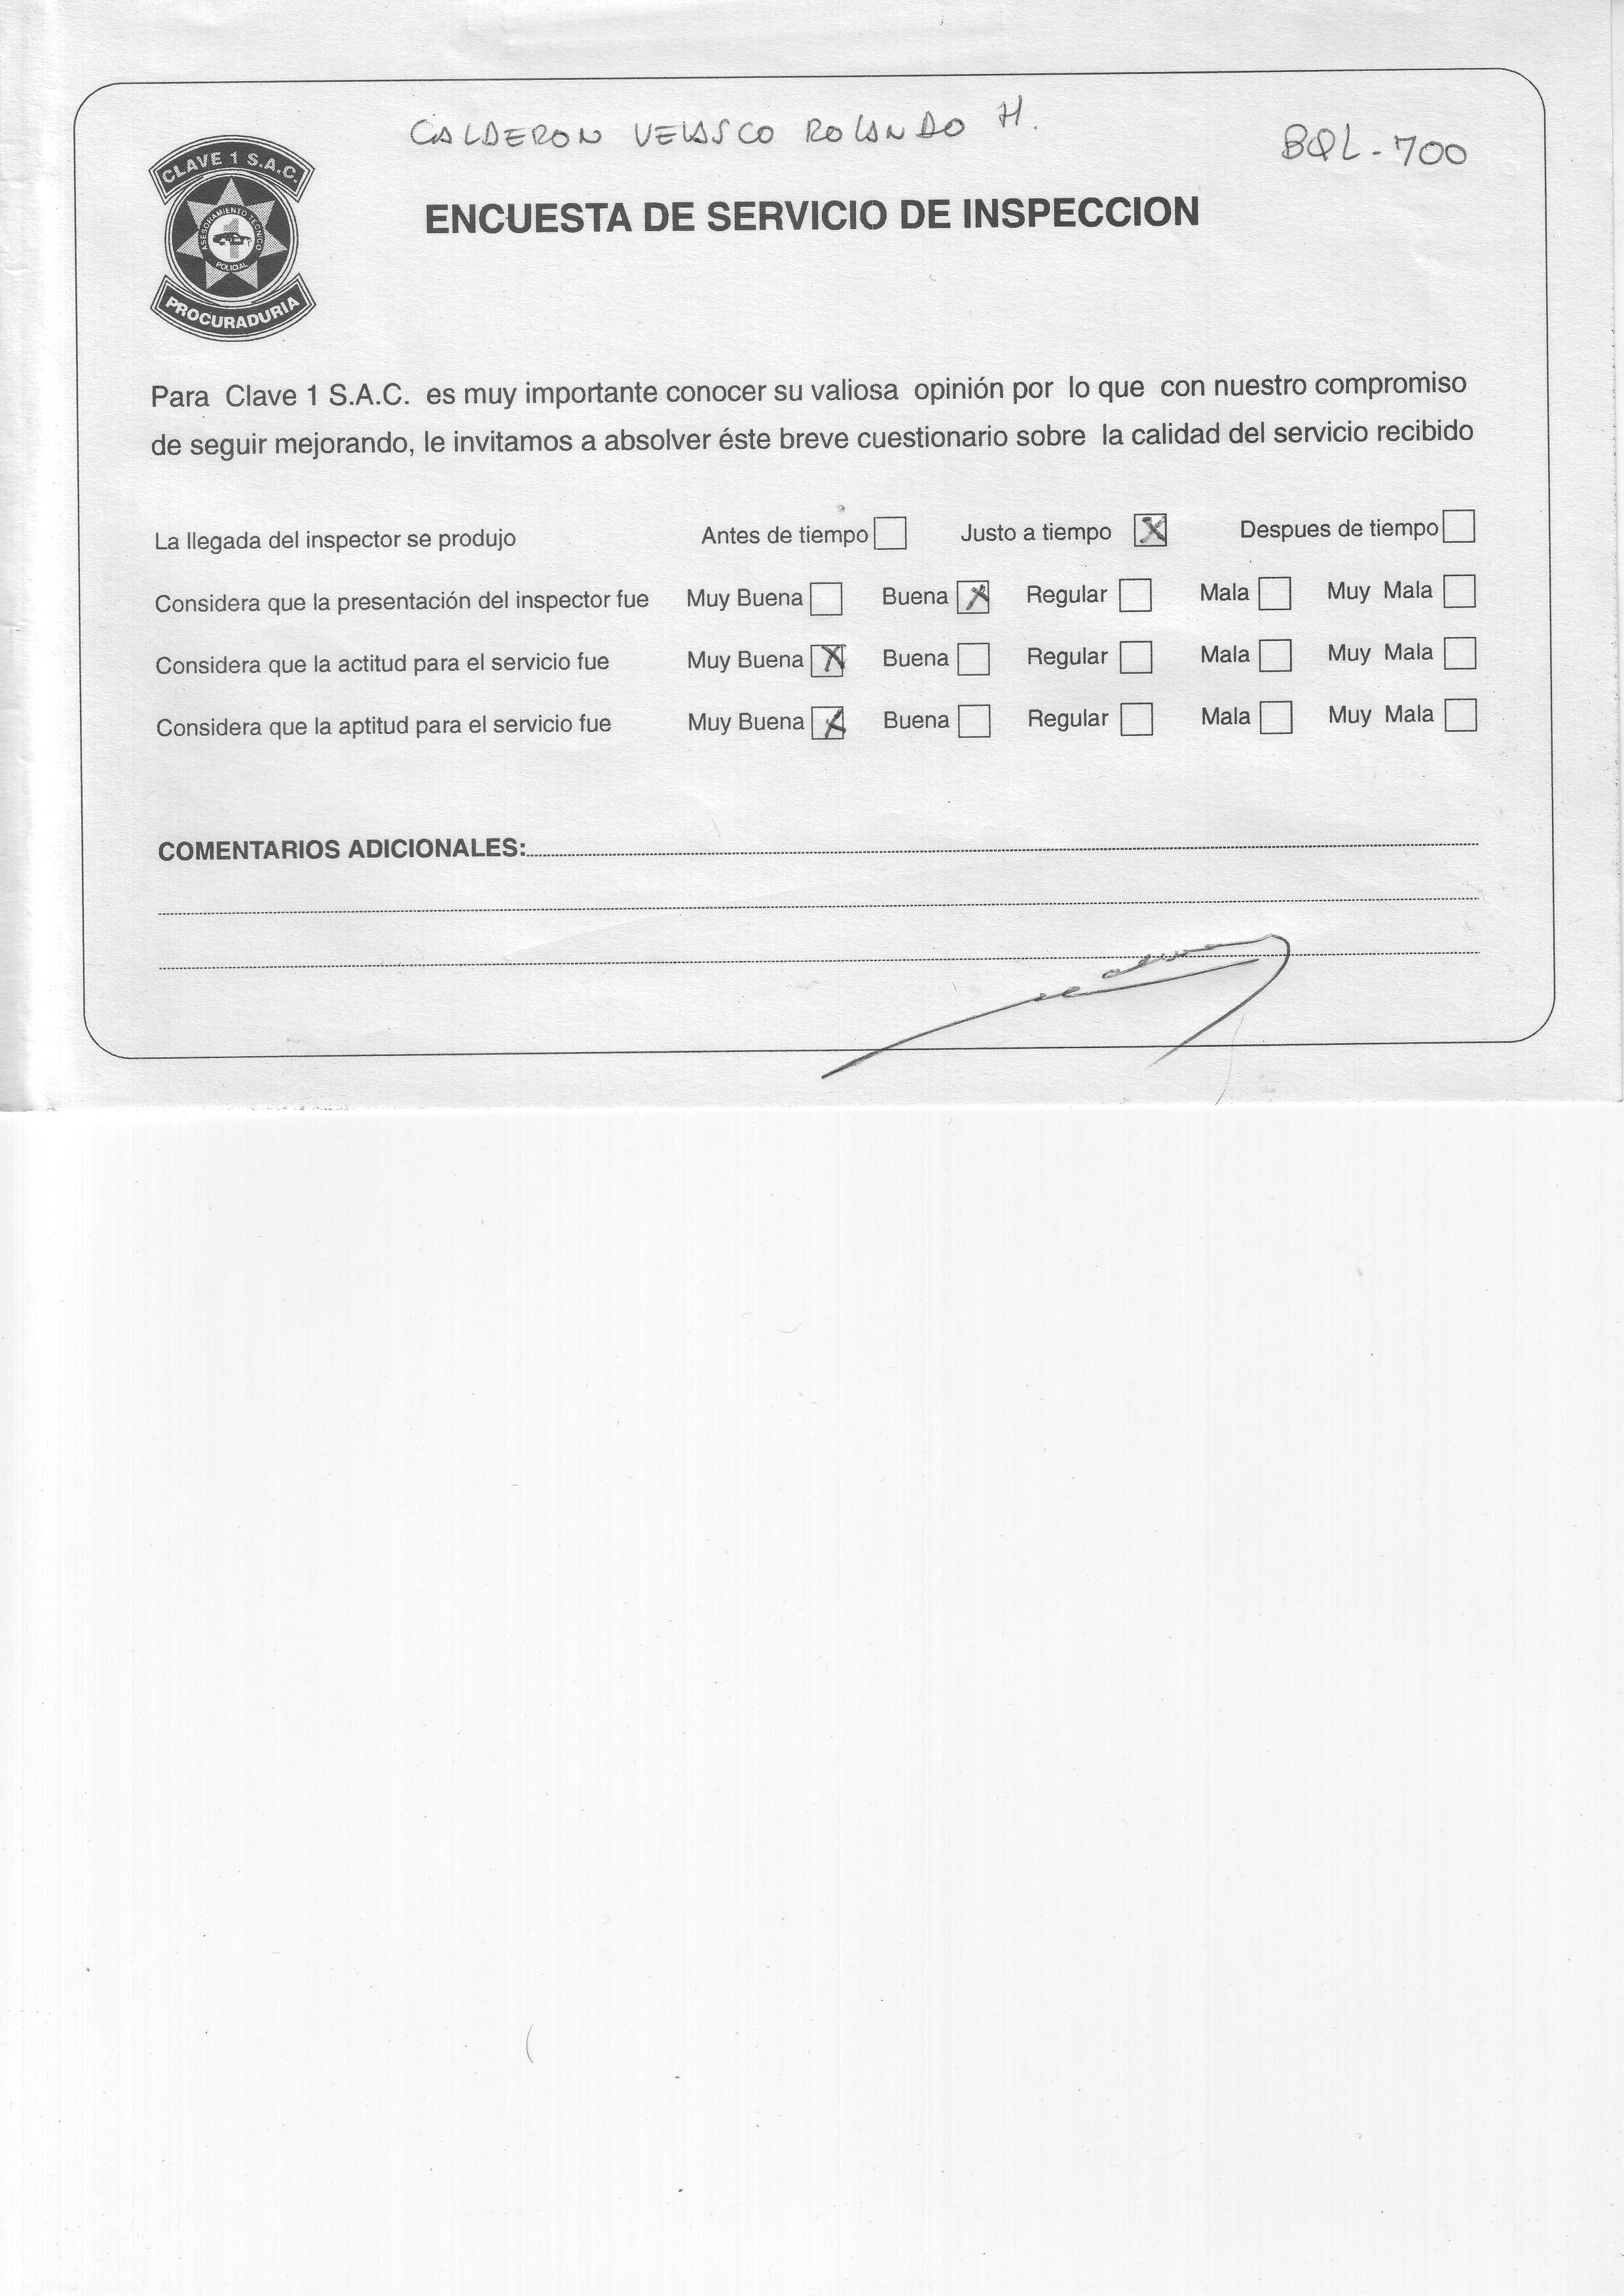 CALDERON VELASCO ROLANDO H.
BQL-700
CLAVE 1 S.A.C.
ASESORAMIENTO TECNICO
POLICIAL
PROCURADURIA
ENCUESTA DE SERVICIO DE INSPECCION
Para Clave 1 S.A.C. es muy importante conocer su valiosa opinión por lo que con nuestro compromiso
de seguir mejorando, le invitamos a absolver éste breve cuestionario sobre la calidad del servicio recibido
La llegada del inspector se produjo Antes de tiempo Justo a tiempo X Despues de tiempo
Considera que la presentación del inspector fue Muy Buena Buena X Regular Mala Muy Mala
Considera que la actitud para el servicio fue Muy Buena X Buena Regular Mala Muy Mala
Considera que la aptitud para el servicio fue Muy Buena X Buena Regular Mala Muy Mala
COMENTARIOS ADICIONALES: